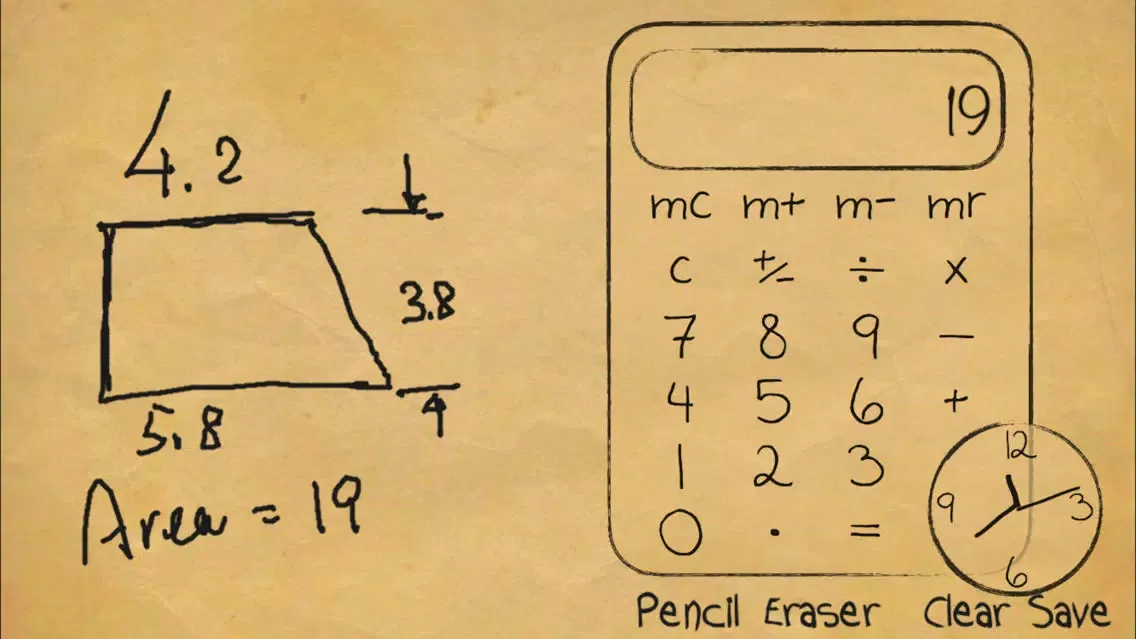 4.2
3.8
5.8
Area = 19
19
mc m+ m- mr
c +/- ÷ x
7 8 9 -
4 5 6 +
1 2 3
0 . =
12
9 3
6
Pencil Eraser Clear Save